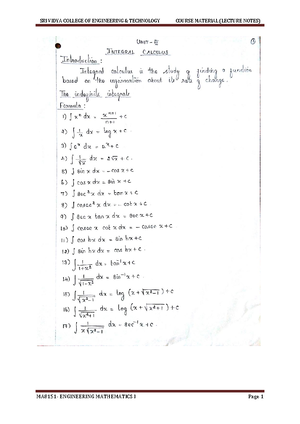 SRI VIDYA COLLEGE OF ENGINEERING & TECHNOLOGY COURSE MATERIAL (LECTURE NOTES)
UNIT-II
INTEGRAL CALCULUS
Introduction:
Integral calculus is the study of finding a function
based on the information about its rate of change.
The indefinite integrals
Formula:
1) ∫ xⁿ dx = xⁿ⁺¹/n+1 + c
2) ∫ 1/x dx = log x + c
3) ∫ eˣ dx = eˣ + c
4) ∫ 1/√x dx = 2√x + c
5) ∫ sin x dx = -cos x + c
6) ∫ cos x dx = sin x + c
7) ∫ sec² x dx = tan x + c
8) ∫ cosec² x dx = -cot x + c
9) ∫ sec x tan x dx = sec x + c
10) ∫ cosec x cot x dx = -cosec x + c
11) ∫ cos hx dx = sin hx + c
12) ∫ sin hx dx = cos hx + c
13) ∫ 1/1+x² dx = tan⁻¹ x + c
14) ∫ 1/√1-x² dx = sin⁻¹ x + c
15) ∫ 1/√x²-1 dx = log (x + √x²-1) + c
16) ∫ 1/√x²+1 dx = log (x + √x²+1) + c
17) ∫ 1/x√x²-1 dx = sec⁻¹ x + c
MA8151: ENGINEERING MATHEMATICS I Page 1